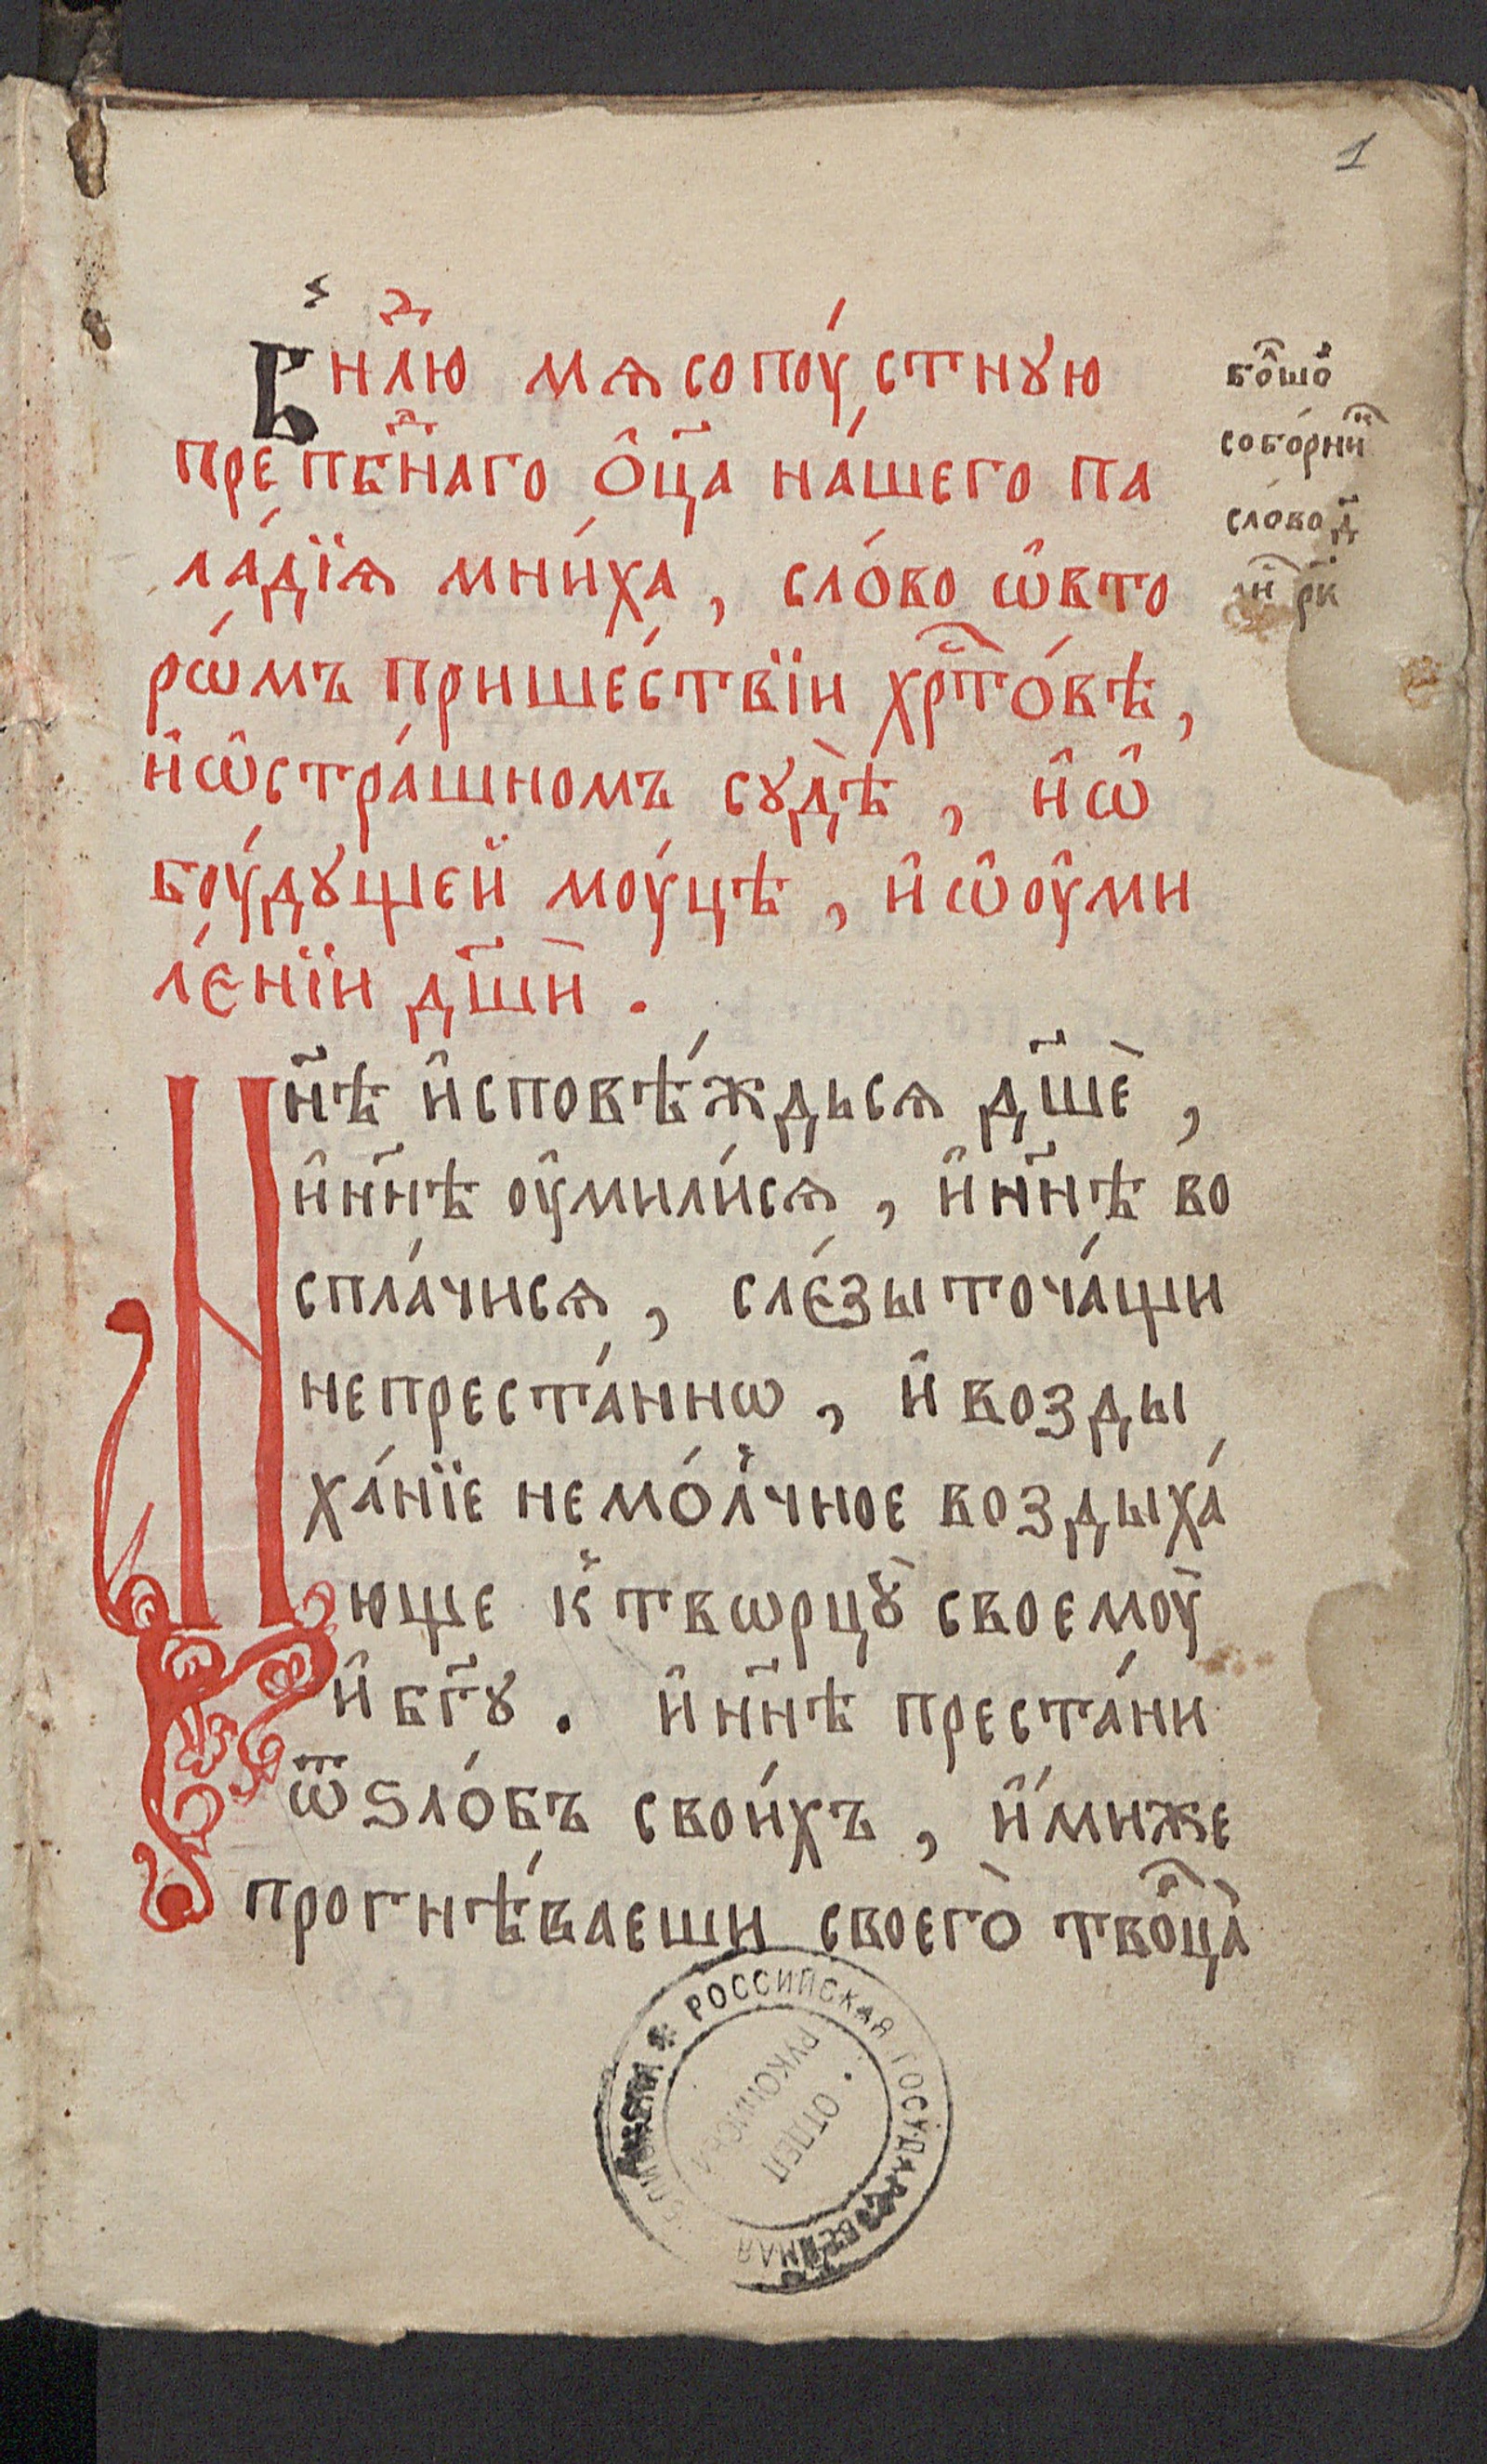 1
В нл҃ю мѧсопоу́стную
препбⷣнаго о҆ц҃а на́шего па
ла́дїѧ мни́ха, сло́во ѡ҆вто
рѡ́мъ прише́ствїи хрⷭ҇то́вѣ,
и҆ѡ҆стра́шномъ сꙋдѣ̀, и҆ѡ҆
боу́дꙋщей моу́цѣ, и҆ѡ҆оу҆ми
ле́нїи дш҃ѝ.
Нн҃ѣ и҆сповѣ́ждьсѧ дш҃ѐ,
и҆нн҃ѣ оу҆мили́сѧ, и҆нн҃ѣ во
спла́чисѧ, сле́зы точа́щи
непреста́ннѡ, и҆ возды
ха́нїе немо́лчное воздыха́
юще к̾ твѡрцꙋ̀ своемоу̀
и҆ бг҃ꙋ. и҆нн҃ѣ преста́ни
ѿ ѕло́бъ свои́хъ, и҆́миже
прогнѣ́ваеши своего̀ твоⷬ҇ца̀
собо́рни
сло́во д҃
РОССИЙСКАЯ ГОСУДАРСТВЕННАЯ
ОТДЕЛ
РУКОПИСЕЙ